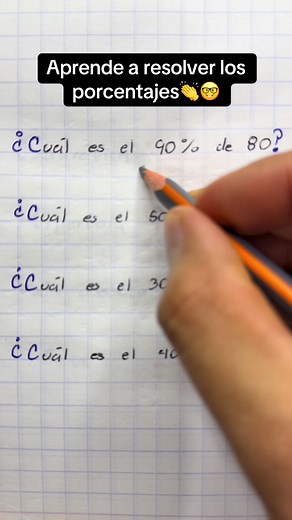 Aprende a resolver los
porcentajes👏🤓
¿Cuál es el 90% de 80?
¿Cuál es el
¿Cuál es el 30
¿Cuál es el 40